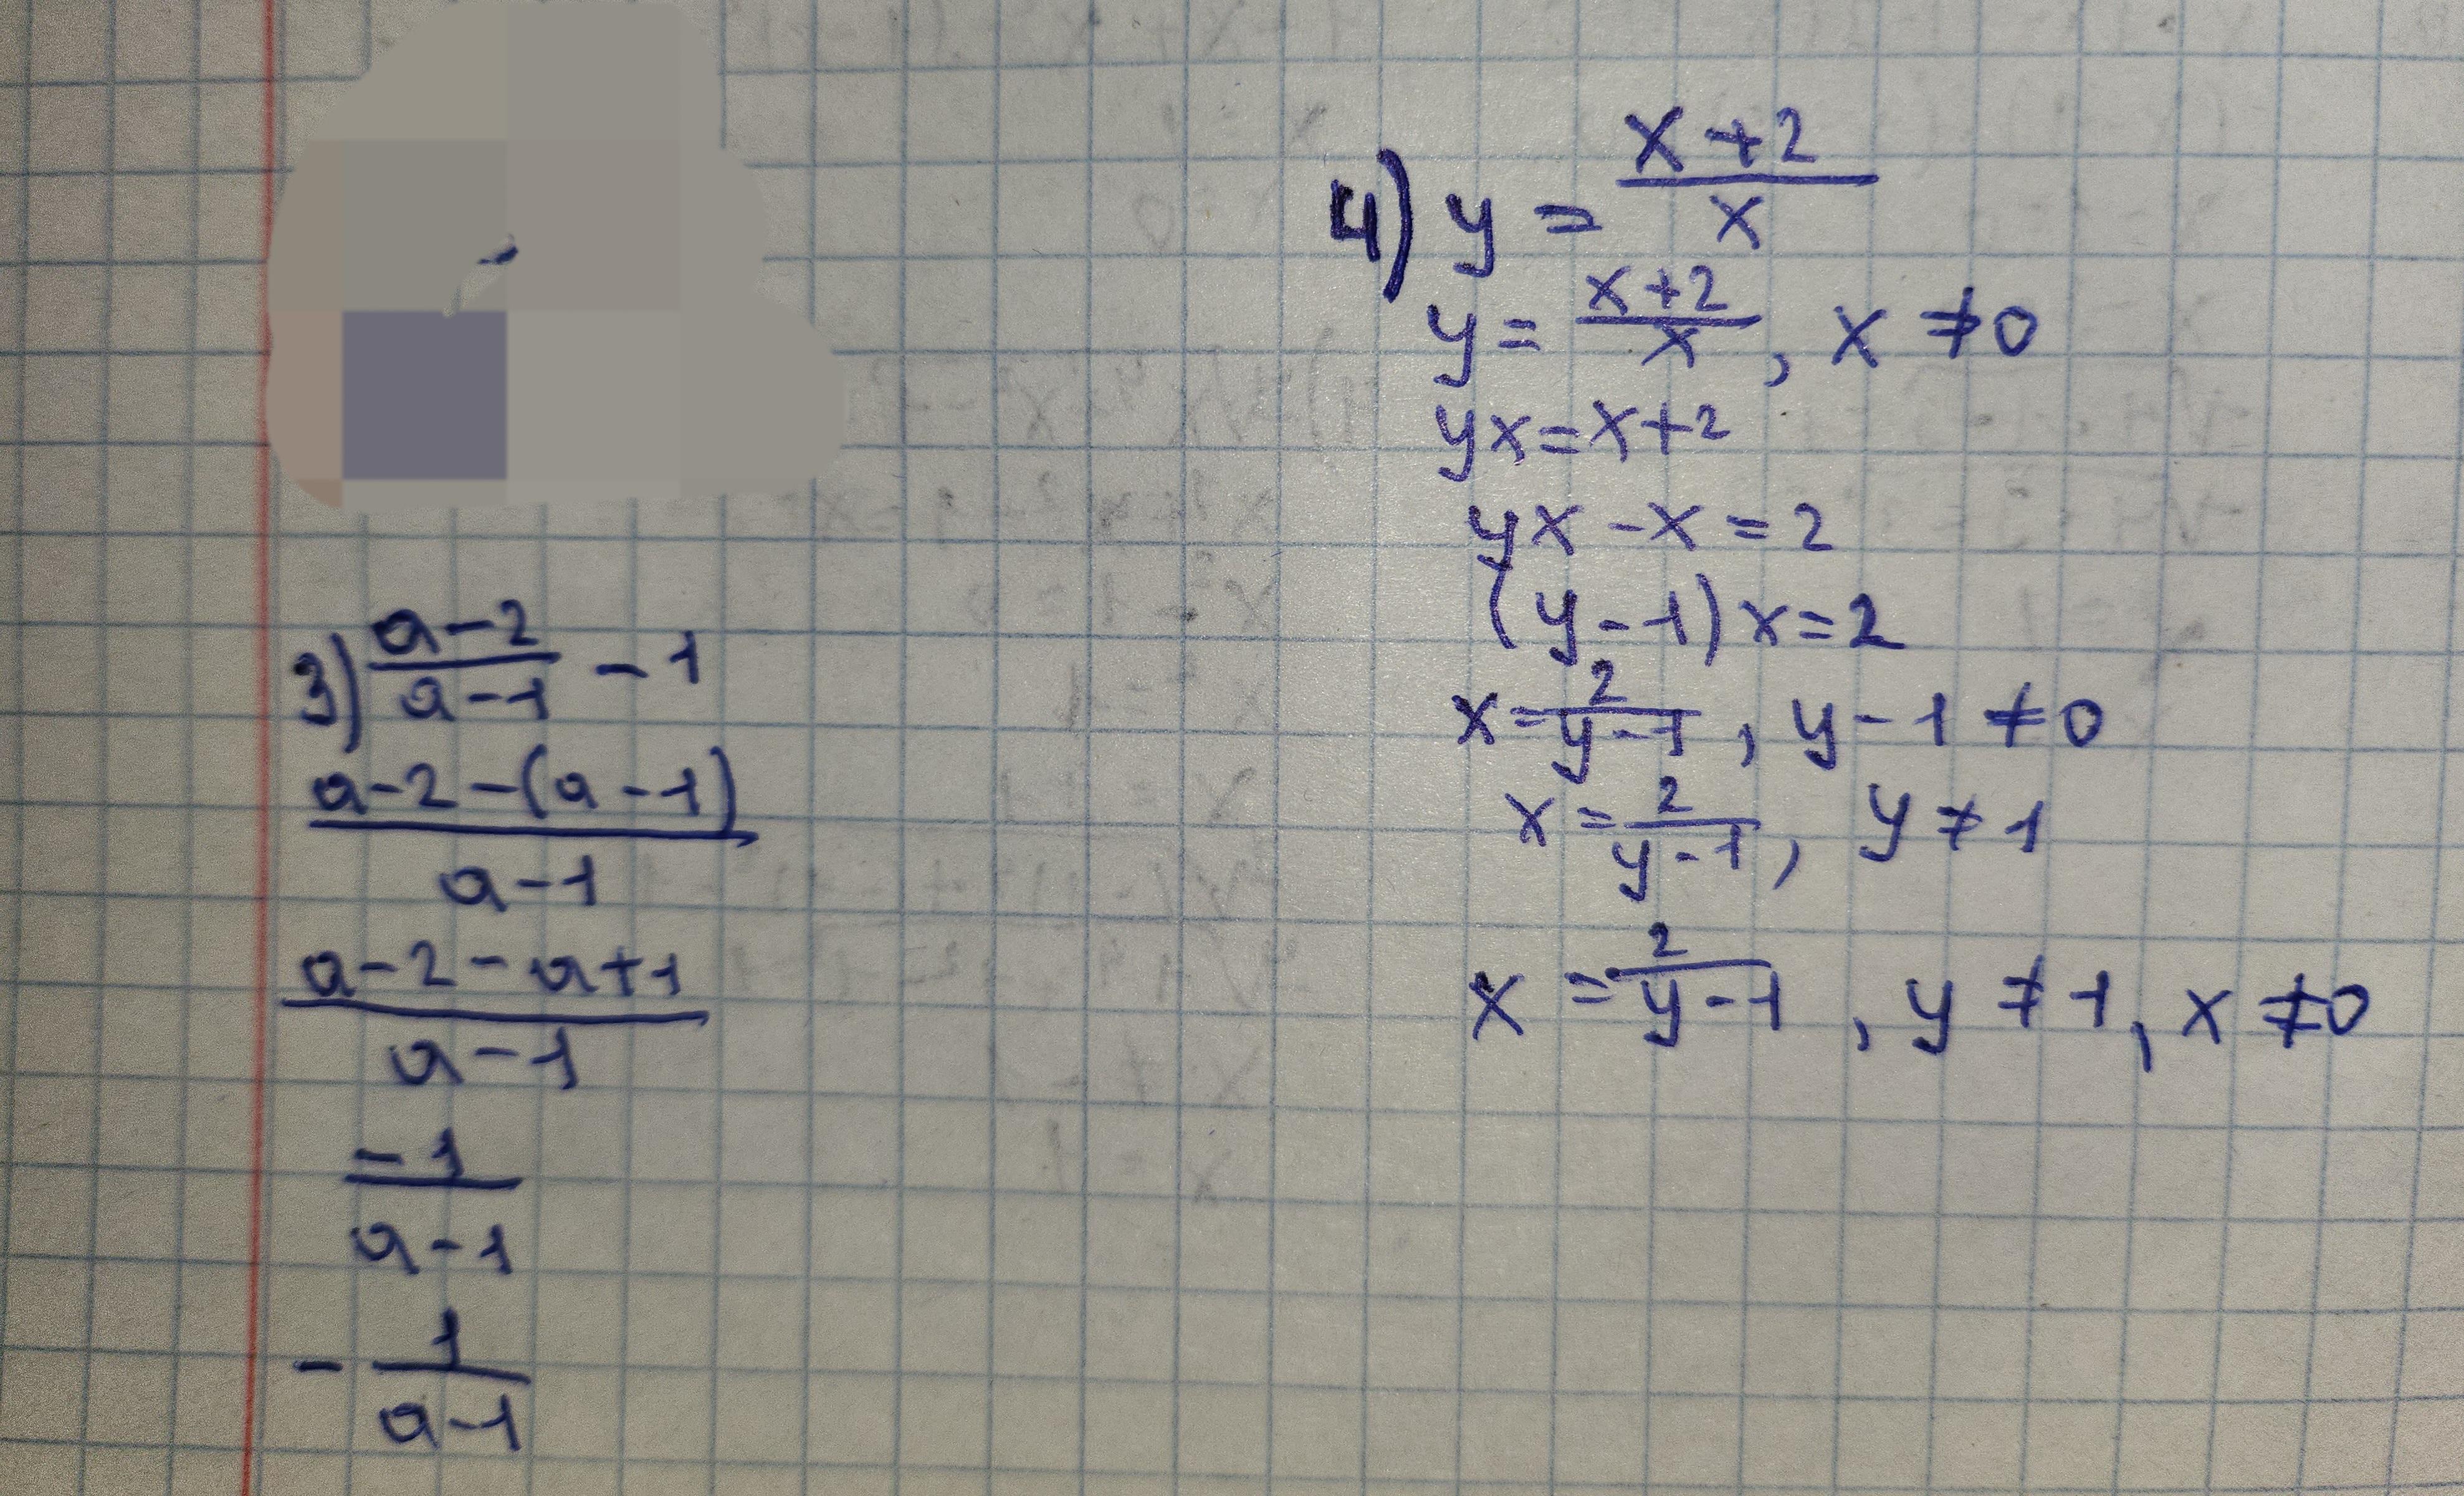 3) \frac{a-2}{a-1} - 1
\frac{a-2-(a-1)}{a-1}
\frac{a-2-a+1}{a-1}
\frac{-1}{a-1}
-\frac{1}{a-1}
4) y = \frac{x+2}{x}
y = \frac{x+2}{x}, x ≠ 0
yx = x+2
yx - x = 2
(y-1)x = 2
x = \frac{2}{y-1}, y-1 ≠ 0
x = \frac{2}{y-1}, y ≠ 1
x = \frac{2}{y-1}, y ≠ 1, x ≠ 0